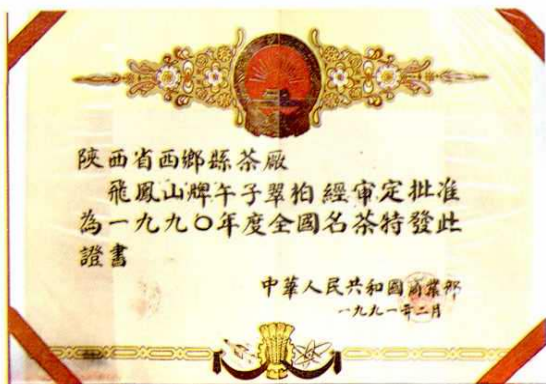 陝西省西鄉縣茶廠
飛鳳山牌午子翠柏經审定批准
為一九九〇年度全國名茶特發此
證書
中華人民共和國商業部
一九九一年二月